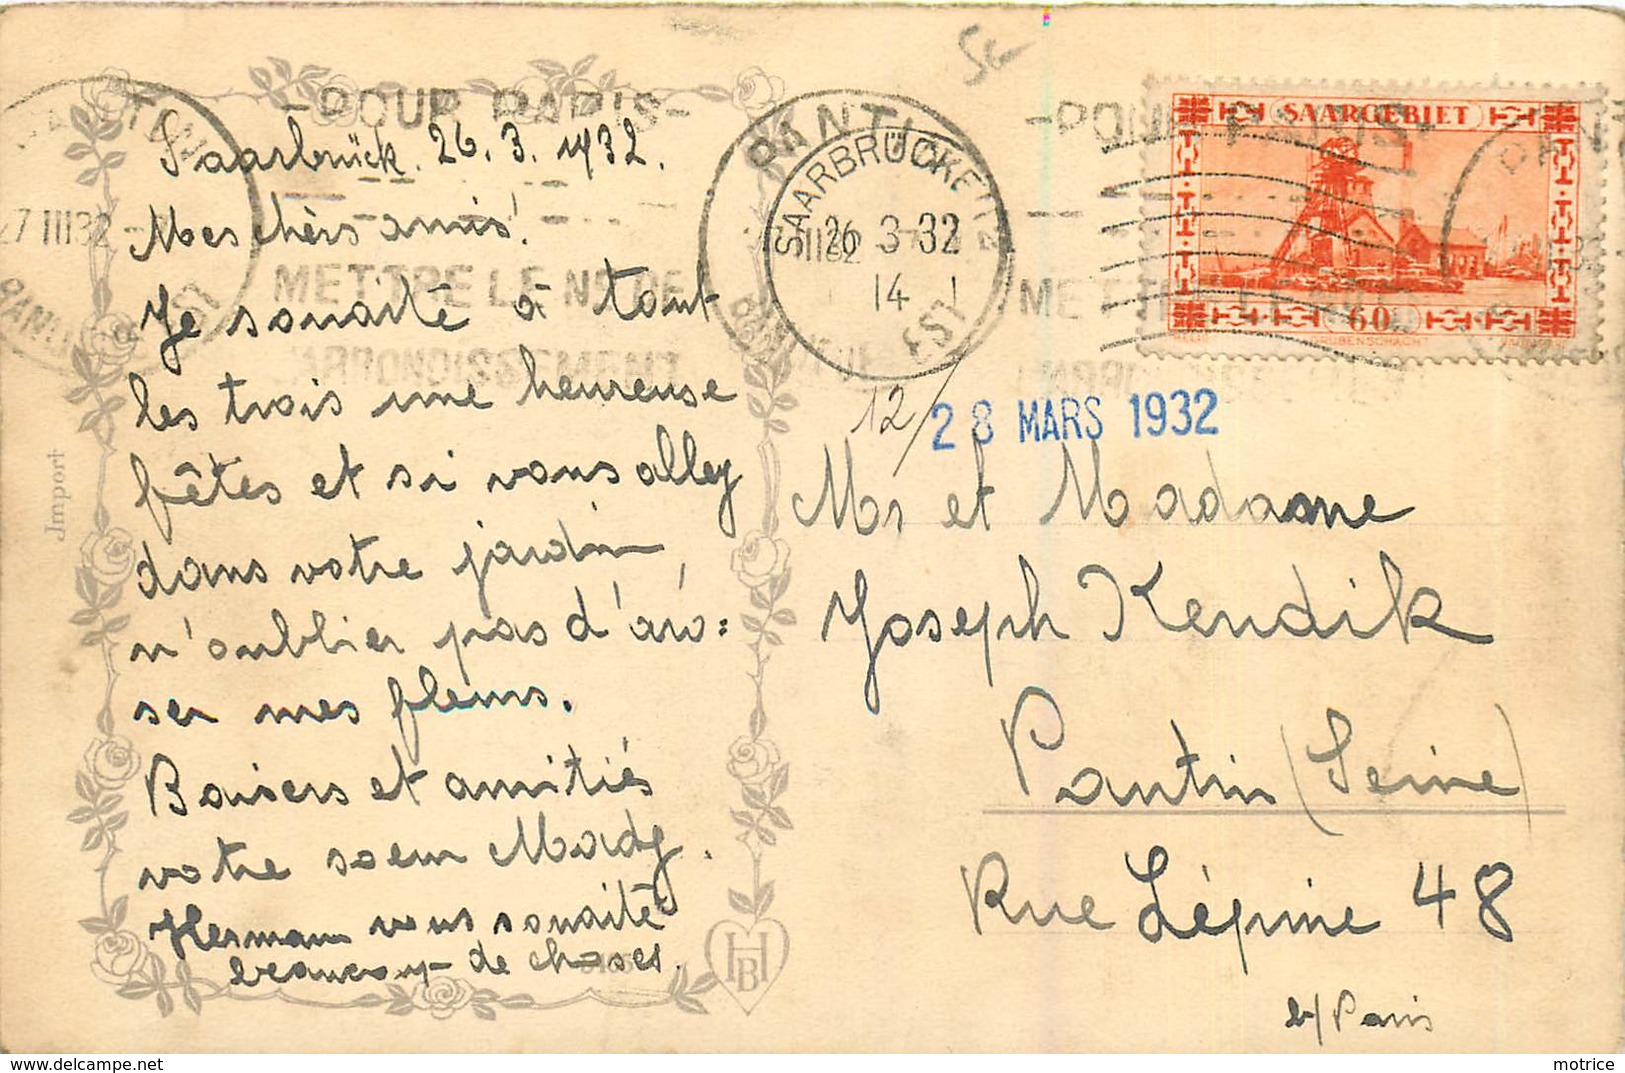 Saarbrück. 26. 3. 1932.
Mes chèrs amis!
Je sonaite à tout
les trois une heureuse
fêtes et si vous allez
dans votre jardin
n'oublier pas d'aro=
ser mes fleurs.
Baisers et amitiés
votre soeur Mady.
Hermann vous sonaite
beaucoup de choses.
Import
HBH
-POUR PARIS-
METTRE LE No DE
L'ARRONDISSEMENT
27 III 32
PANTIN
EST
SAARBRÜCKEN 2
26 3 32
14
-POUR PARIS-
METTRE LE
SAARGEBIET
60
GRUBENSCHACHT
12/
28 MARS 1932
Mr et Madame
Joseph Kendik
Pantin (Seine)
Rue Lépine 48
b/ Paris
motrice